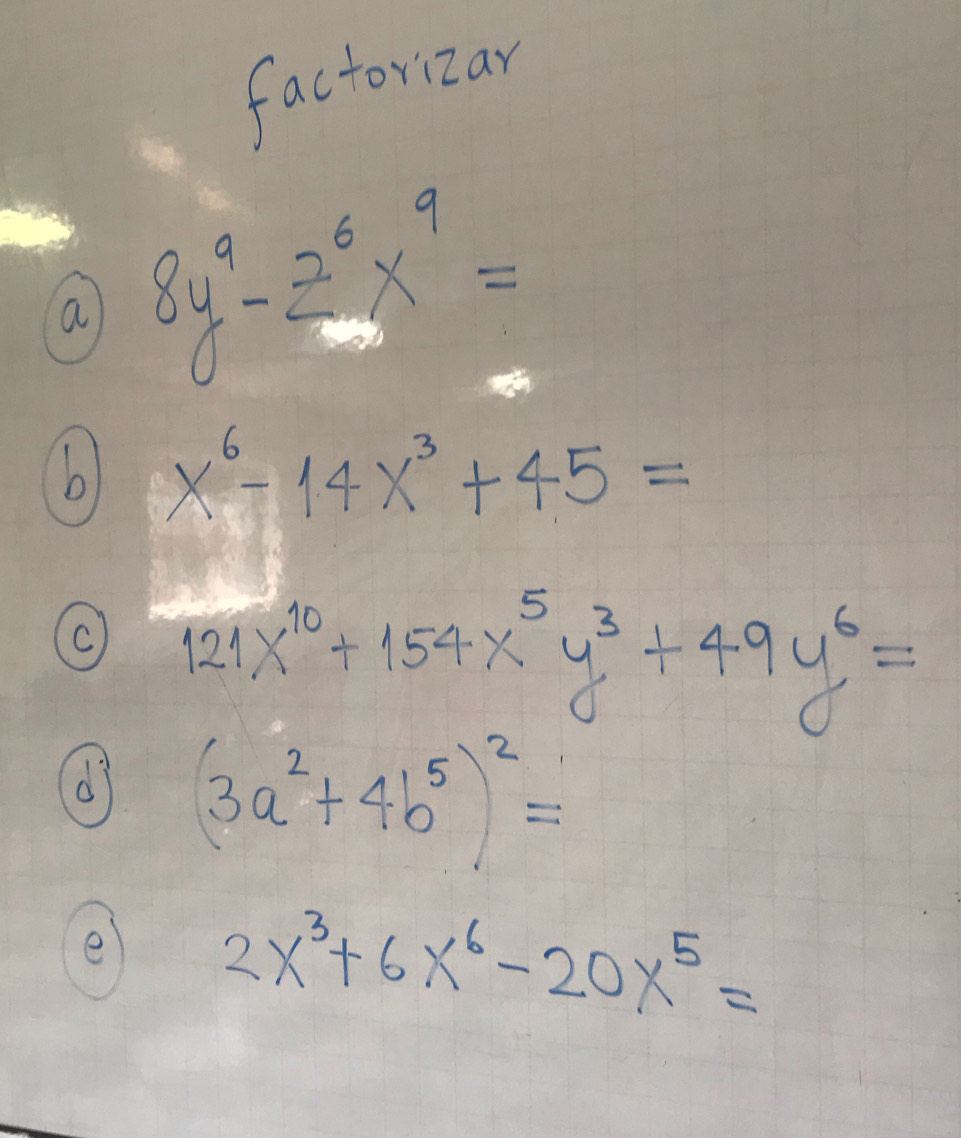 factorizar
a) 8y⁹ - z⁶x⁹ =
b) x⁶ - 14x³ + 45 =
c) 121x¹⁰ + 154x⁵y³ + 49y⁶ =
d) (3a² + 4b⁵)² =
e) 2x³ + 6x⁶ - 20x⁵ =